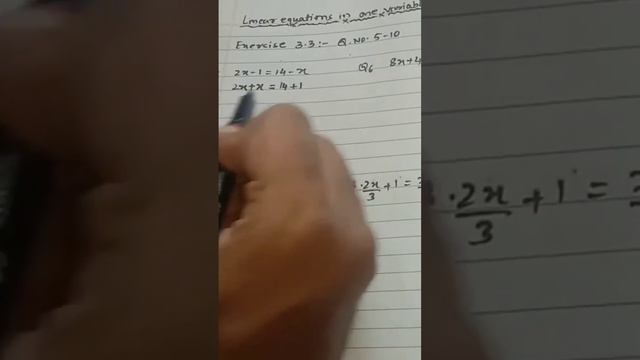 Linear equations in one variabl
Exercise 3.3:- Q.No. 5-10
2x-1 = 14-x
Q6 8x+4
2x+x = 14+1
. 2x/3 + 1 =
. 2x/3 + 1 =